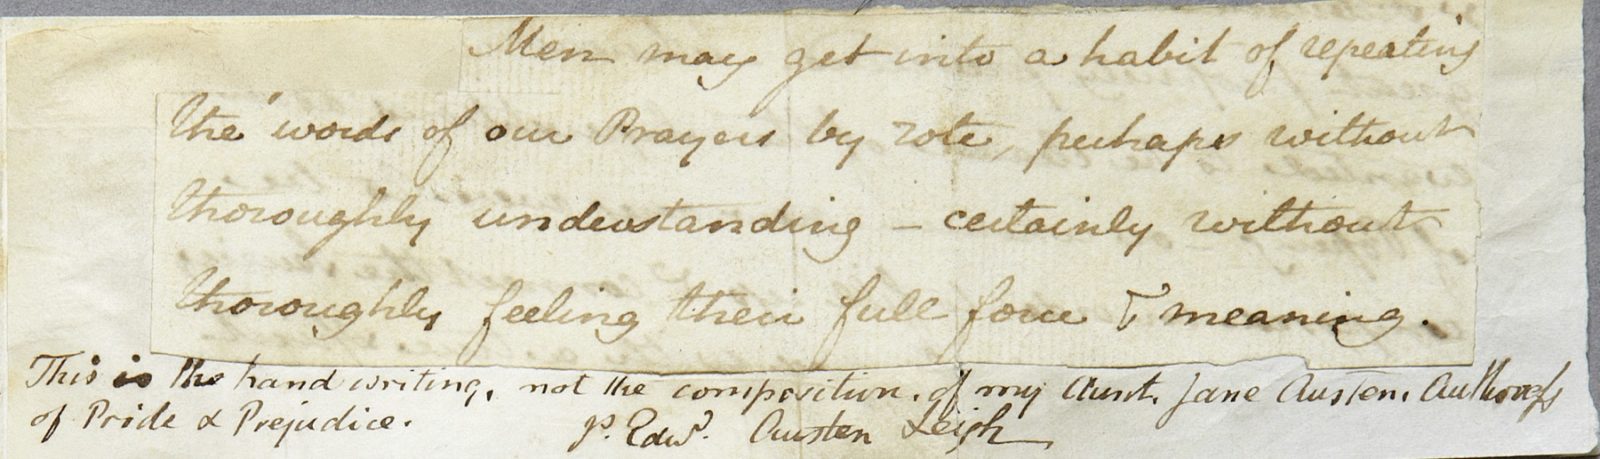 Men may get into a habit of repeating
the words of our Prayers by rote, perhaps without
thoroughly understanding – certainly without
thoroughly feeling their full force & meaning.
This is the hand writing, not the composition, of my Aunt, Jane Austen, Authoress
of Pride & Prejudice.
J. Edwd. Austen Leigh